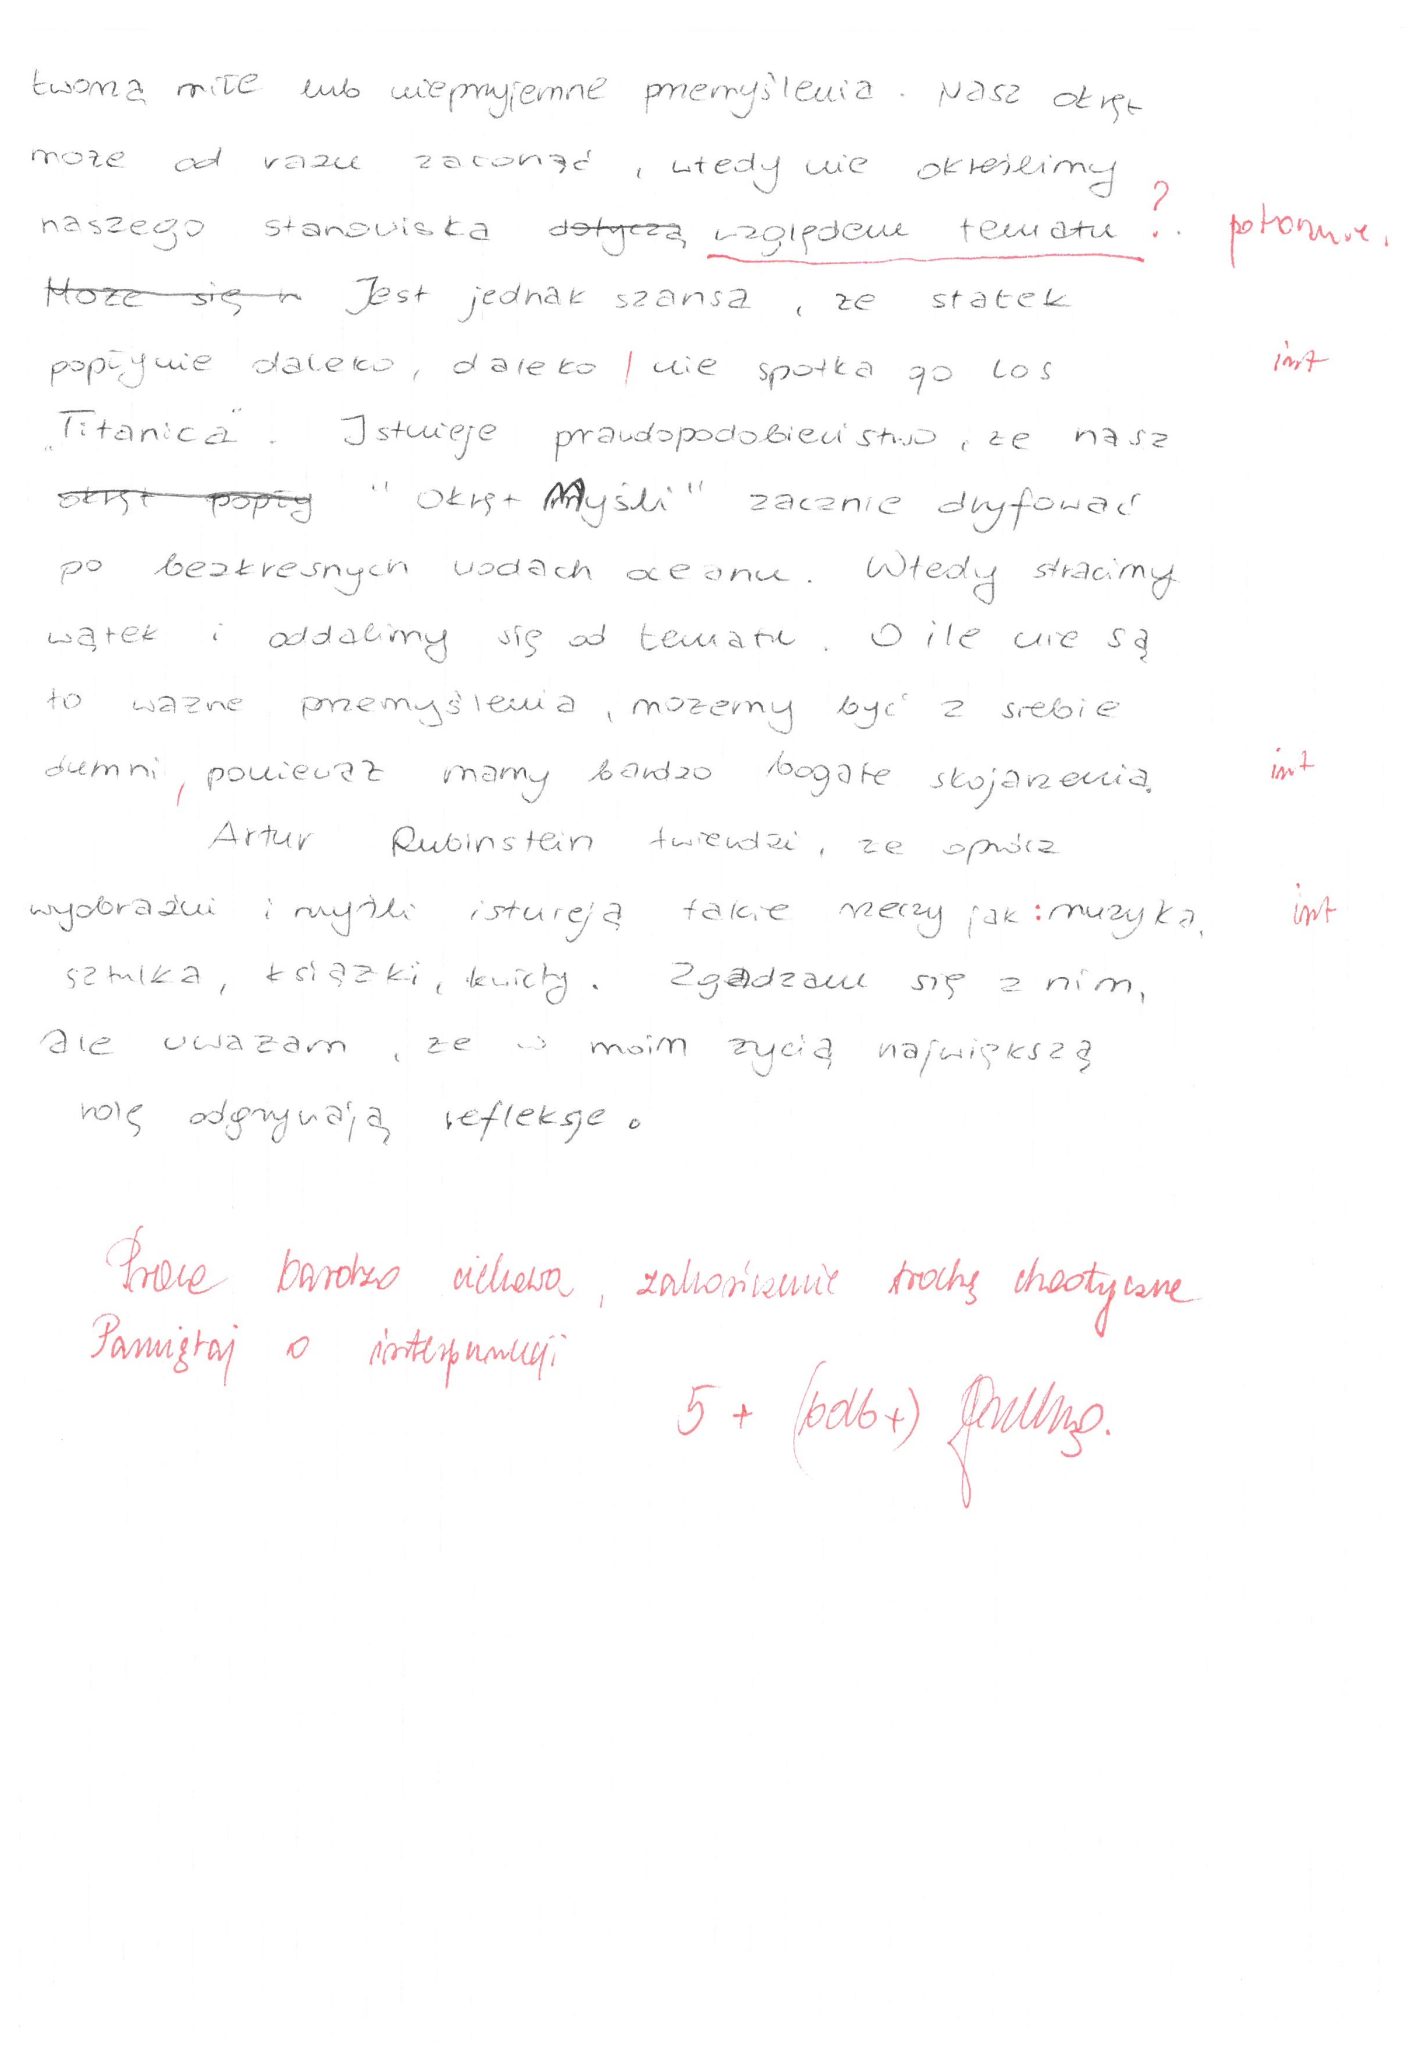 tworzą miłe lub nieprzyjemne przemyślenia. Nasz okręt
może od razu zatonąć, wtedy nie określimy
naszego stanowiska dotyczą względem tematu ?
Może się n Jest jednak szansa, że statek
popłynie daleko, daleko / nie spotka go los int
„Titanica". Istnieje prawdopodobieństwo, że nasz
okręt popły "Okręt Myśli" zacznie dryfować
po bezkresnych wodach oceanu. Wtedy stracimy
wątek i oddalimy się od tematu. O ile nie są
to ważne przemyślenia, możemy być z siebie
dumni, ponieważ mamy bardzo bogate skojarzenia. int
Artur Rubinstein twierdzi, że oprócz
wyobraźni i myśli istnieją takie rzeczy jak: muzyka, int
sztuka, książki, kwiaty. Zgadzam się z nim,
ale uważam, że w moim życią największą
rolę odgrywają refleksje.
Praca bardzo ciekawa, zakończenie trochę chaotyczne
Pamiętaj o interpunkcji
5+ (bdb+)